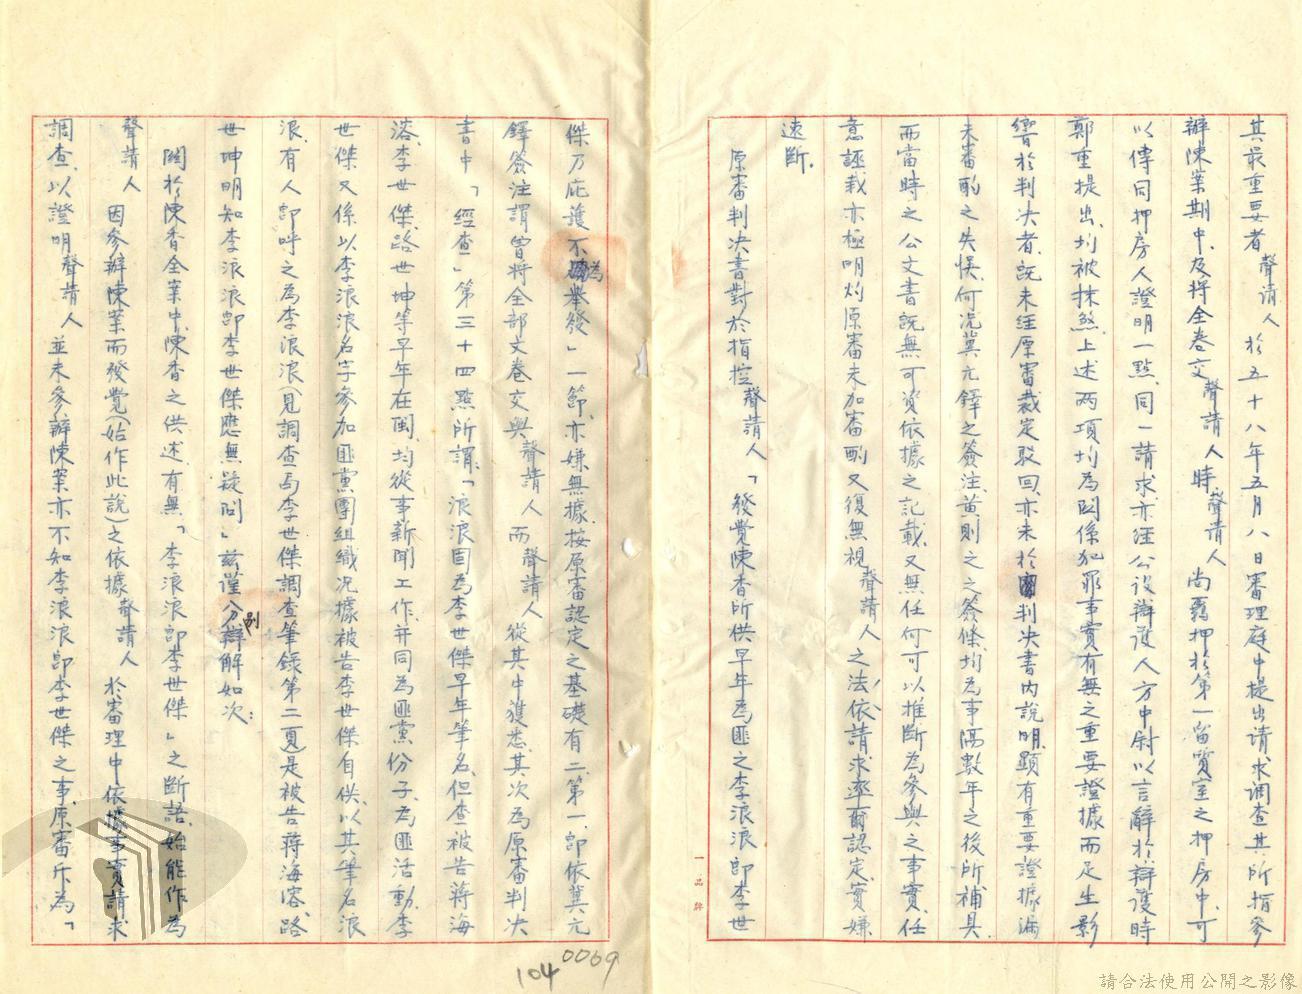 其最重要者聲請人於五十八年五月八日審理庭中提出請求調查其所指參
辦陳案期中、及將全卷交聲請人時聲請人尚羈押於第一留質室之押房中、可
以傳同押房人證明一點、同一請求亦經公設辯護人方中尉以言辭於辯護時
鄭重提出、均被抹煞、上述兩項均為關係犯罪事實有無之重要證據而足生影
響於判決者、既未經原審裁定駁回、亦未於判決書內說明、顯有重要證據漏
未審酌之失悞、何況冀元鐸之簽注、黃則之之簽條、均為事隔數年之後所補具、
而當時之公文書既無可資依據之記載、又無任何可以推斷為參與之事實、任
意誣栽亦極明灼、原審未加審酌、又復無視聲請人之法依請求、率爾認定、實嫌
速斷。
原審判決書對於指控聲請人「發覺陳香所供早年為匪之李浪浪即李世
傑乃庇護不為舉發」一節、亦嫌無據、按原審認定之基礎有二、第一、即依冀元
鐸簽注謂曾將全部文卷交與聲請人而聲請人從其中獲悉、其次為原審判決
書中「經查」第三十四點所謂：「浪浪固為李世傑早年筆名、但查被告蔣海
溶、李世傑、路世坤等早年在閩、均從事新聞工作、并同為匪黨份子、為匪活動、李
世傑又係以李浪浪名字參加匪黨團組織、況據被告李世傑自供、以其筆名浪
浪、有人即呼之為李浪浪（見調查局李世傑調查筆錄第二頁）是被告蔣海溶、路
世坤明知李浪浪即李世傑應無疑問」茲謹分別辯解如次：
關於陳香全案中、陳香之供述、有無「李浪浪即李世傑」之斷語、始能作為
聲請人因參辦陳案而發覺（始作此說）之依據聲請人於審理中依據事實請求
調查、以證明聲請人並未參辦陳案亦不知李浪浪即李世傑之事、原審斥為「
一品牌
104
0069
請合法使用公開之影像